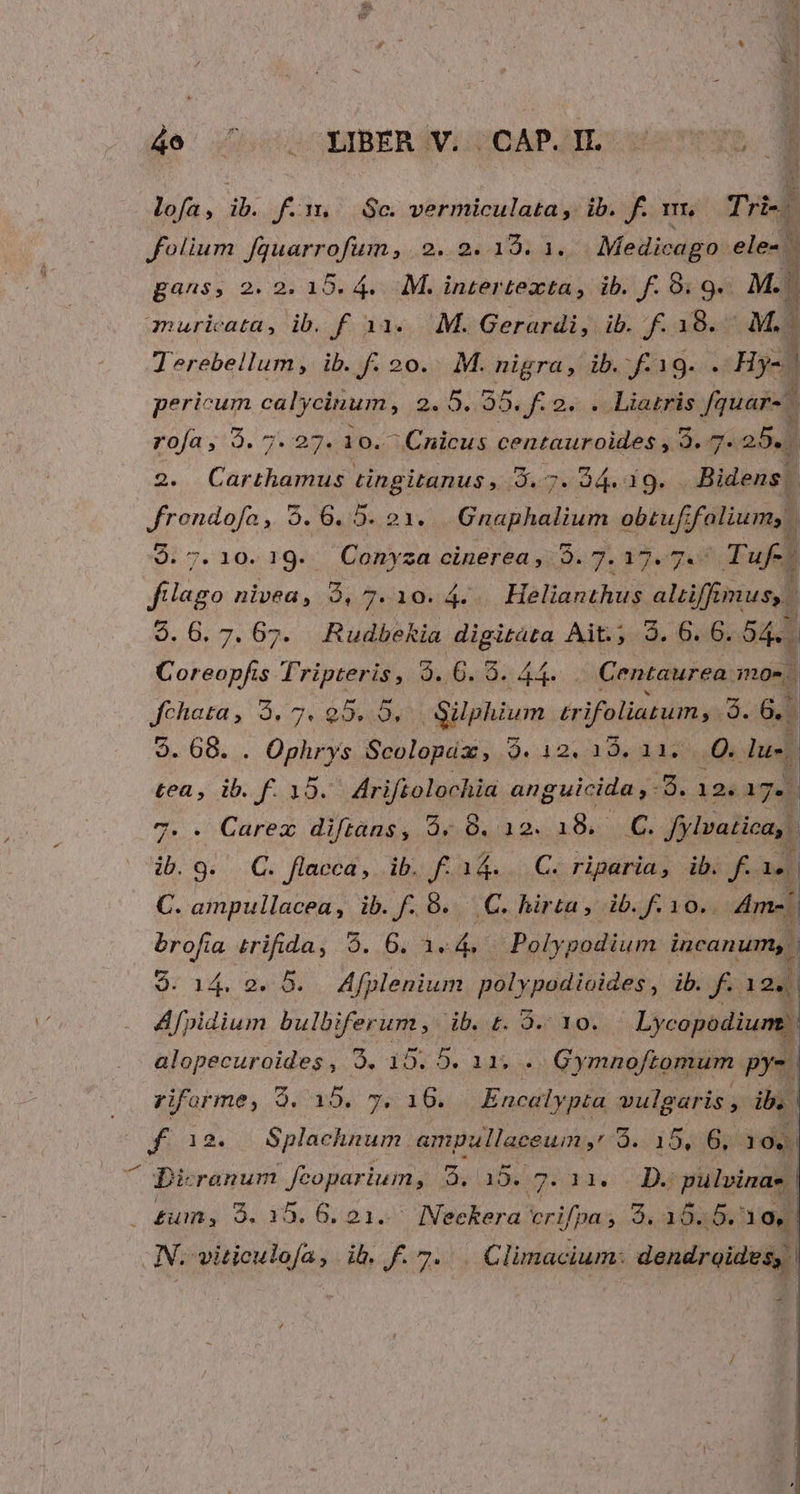 40 LIBER V. CAP. II.
loſa, ib. f. m. Sc. vermiculata, ib. f. m. Tri-
folium ſquarroſum, 2. 2. 13. 1. Medicago ele-
gans, 2. 2. 15. 4. M. intertexta, ib. f. 8. 9. M.
muricata, ib. f 11. M. Gerardi, ib. f. 18. M.
Terebellum, ib. f. 20. M. nigra, ib. f. 19. . Hy-
pericum calycinum, 2. 5. 35. f. 2. . Liatris ſquar-
roſa, 3. 7. 27. 10. Cnicus centauroides, 3. 7. 25.
2. Carthamus tingitanus, 3. 7. 34. 19. Bidens
frondoſa, 3. 6. 5. 21. Gnaphalium obtuſifolium,
3. 7. 10. 19. Conyza cinerea, 3. 7. 17. 7. Tuſ-
ſilago nivea, 3, 7. 10. 4. Helianthus altiſſimus,
3. 6. 7. 67. Rudbekia digitata Ait.; 3. 6. 6. 54.
Coreopſis Tripteris, 3. 6. 3. 44. Centaurea mo-
ſchata, 3. 7. 25. 5. Silphium trifoliatum, 3. 6.
3. 68. . Ophrys Scolopax, 3. 12. 13. 11. O. lu-
tea, ib. f. 15. Ariſtolochia anguicida, 3. 12. 17.
7. . Carex diſtans, 3. 8. 12. 18. C. ſylvatica,
ib. 9. C. flacca, ib. f. 14. C. riparia, ib. f. 1.
C. ampullacea, ib. f. 8. C. hirta, ib. f. 10. Am-
broſia trifida, 3. 6. 1. 4. Polypodium incanum,
3. 14. 2. 5. Aſplenium polypodioides, ib. f. 12.
Aſpidium bulbiferum, ib. t. 3. 10. Lycopodium
alopecuroides, 3. 15. 5. 11. . Gymnoſtomum py-
riforme, 3. 15. 7. 16. Encalypta vulgaris, ib.
f 12. Splachnum ampullaceum, 3. 15, 6, 10.
Dicranum ſcoparium, 3. 15. 7. 11. D. pulvina-
tum, 3. 15. 6. 21. Neckera criſpa, 3. 15. 5. 10,
N. viticuloſa, ib. f. 7. . Climacium dendroides,